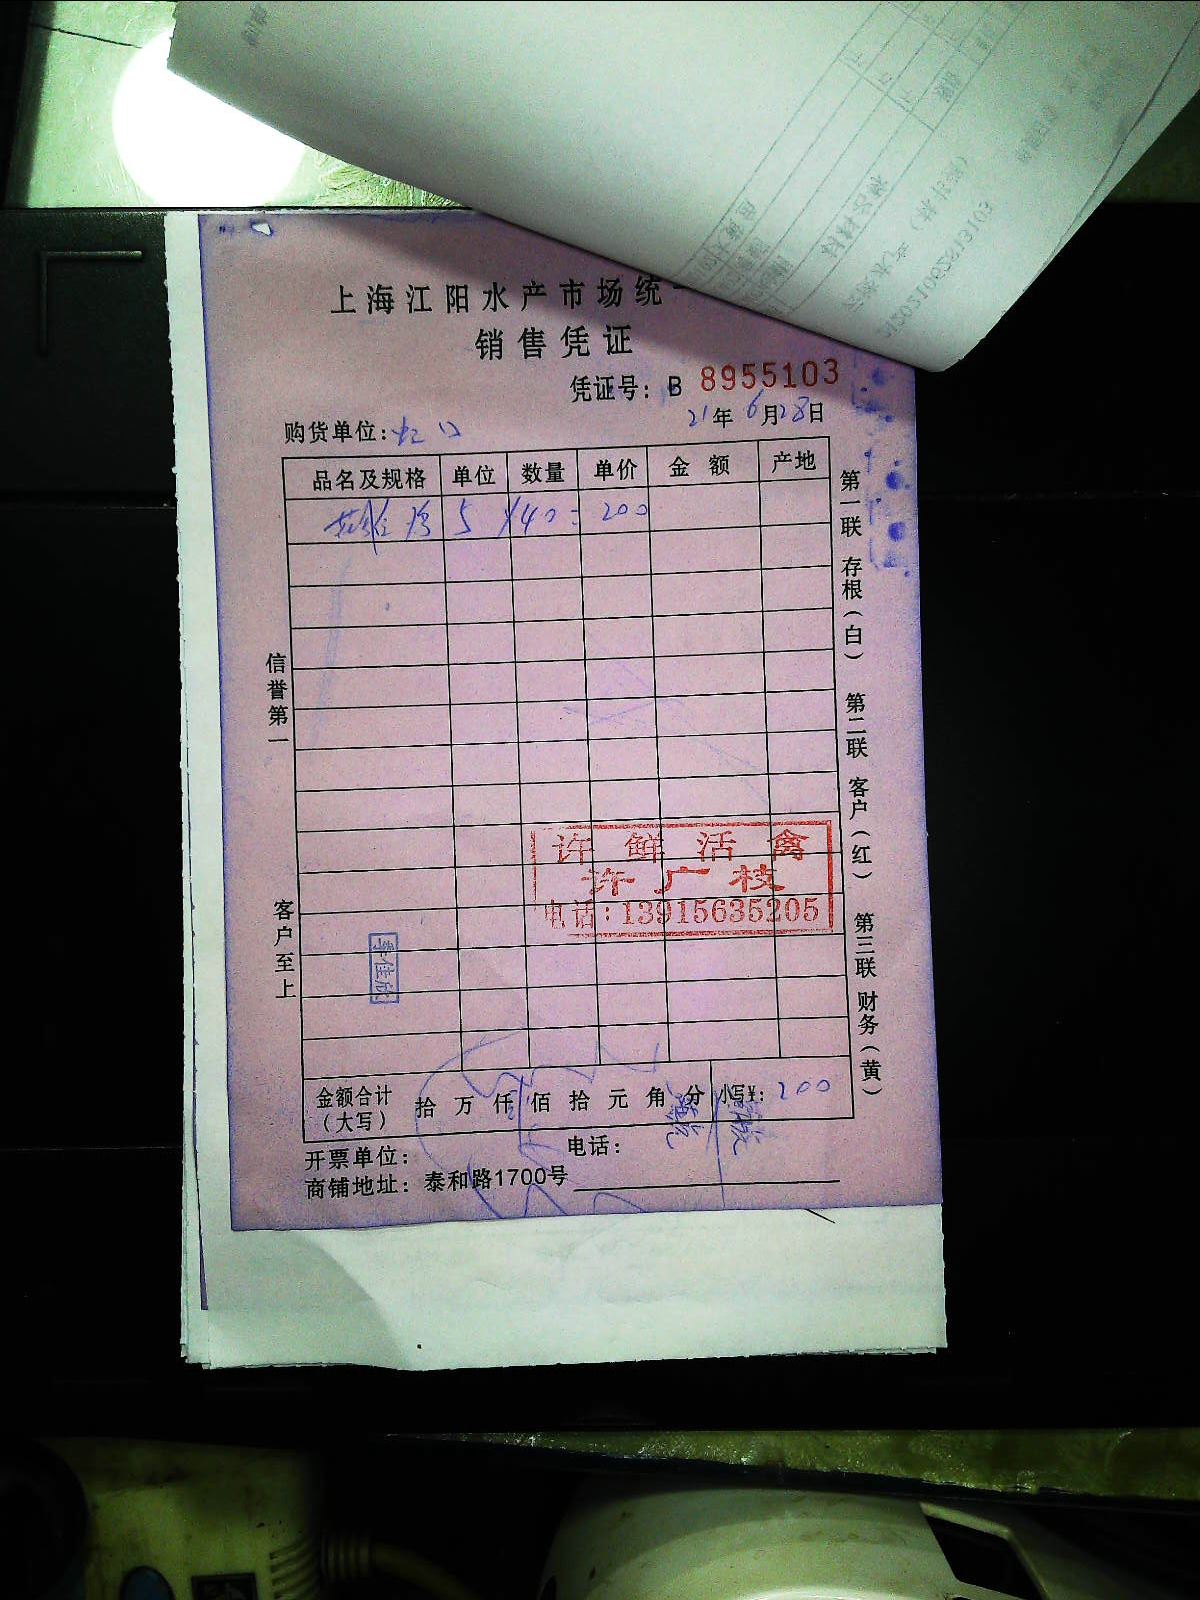 上海江阳水产市场统一
销售凭证
凭证号: B 8955103
21年6月28日
购货单位: 虹口
品名及规格 单位 数量 单价 金额 产地
5 × 40 = 200
信誉第一 客户至上
第一联 存根(白) 第二联 客户(红) 第三联 财务(黄)
许鲜活禽
许广枝
电话:13915635205
金额合计(大写) 拾 万 仟 佰 拾 元 角 分 小写¥: 200
开票单位: 电话:
商铺地址: 泰和路1700号